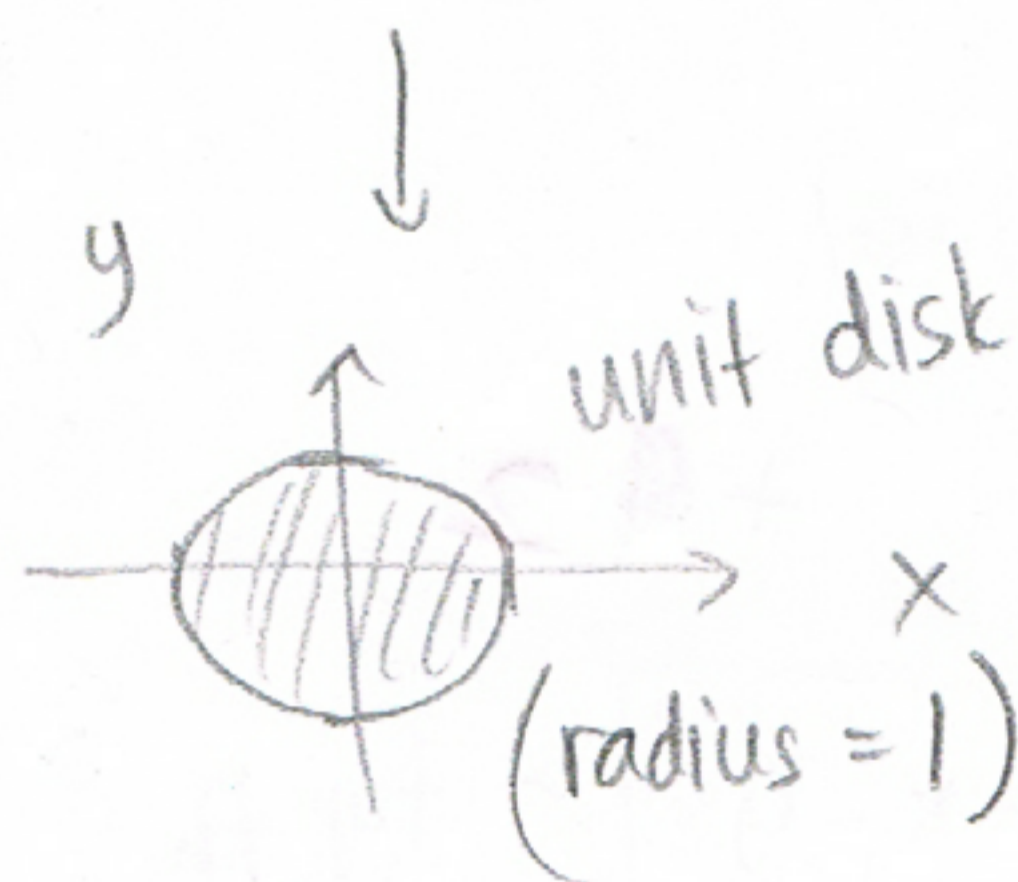 y
unit disk
x
(radius = 1)